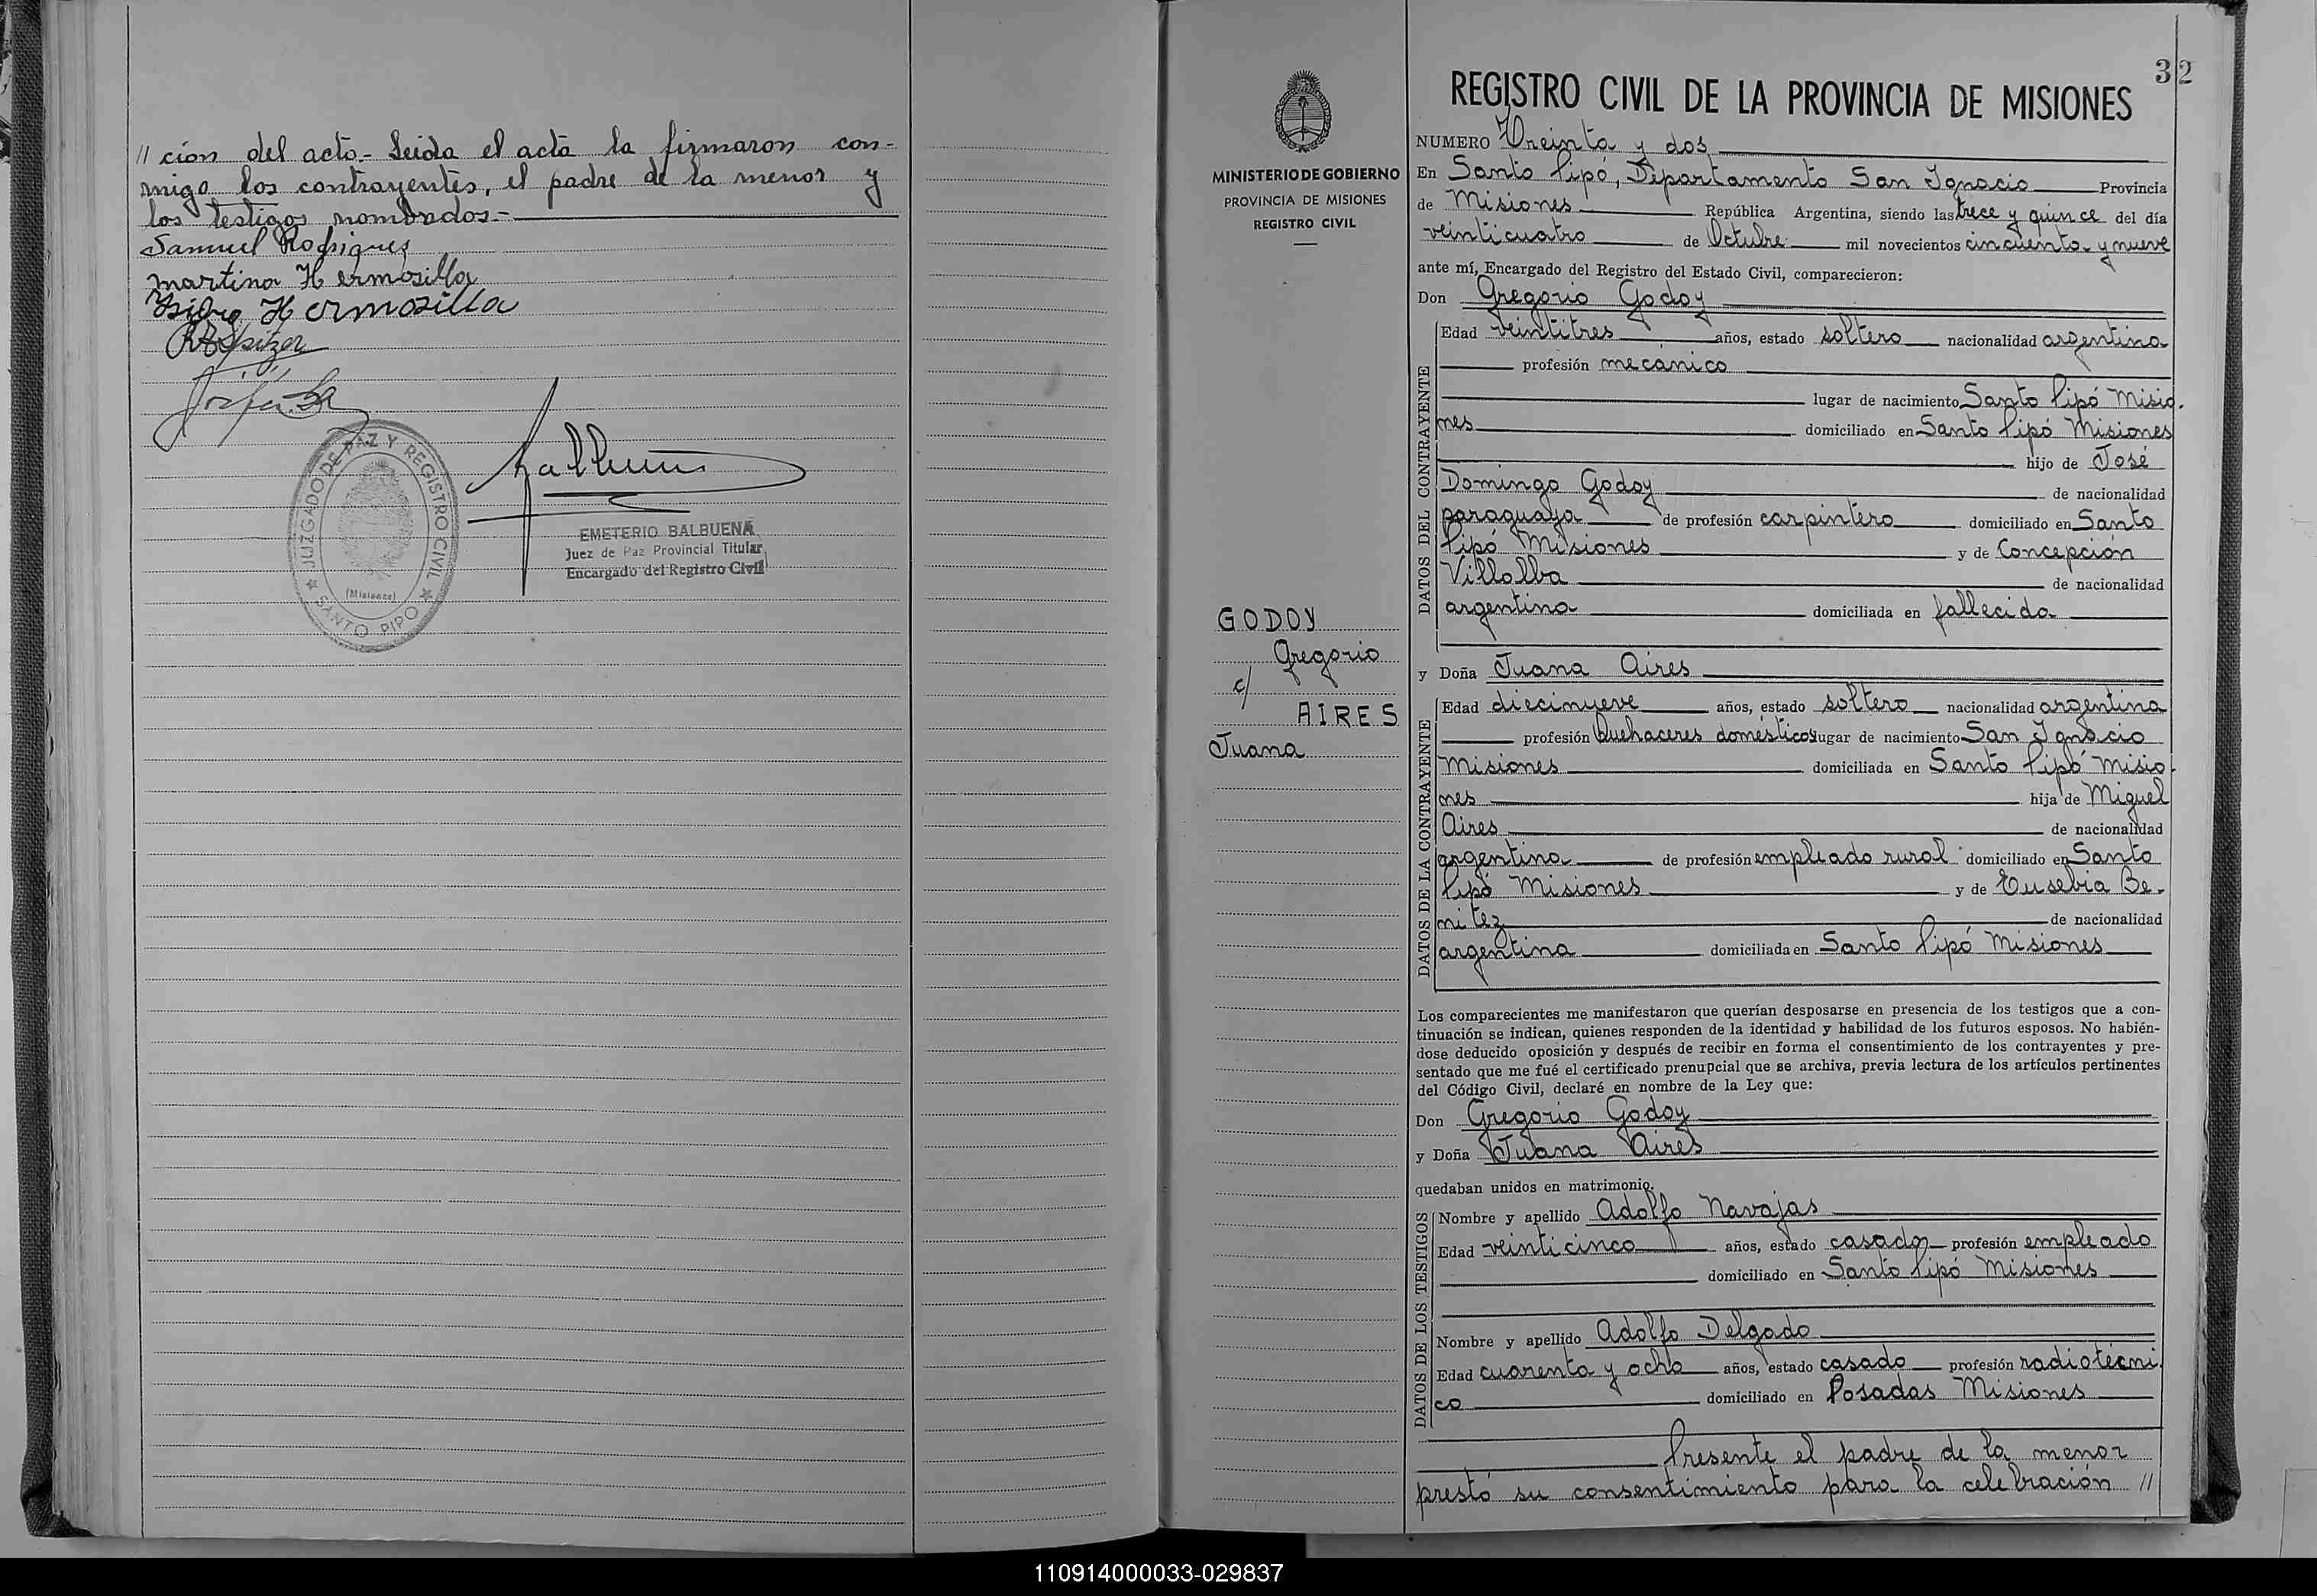 // ción del acto.- Leida el acta la firmaron con-
migo los contrayentes, el padre de la menor y
los testigos nombrados.-
Samuel Rodriguez
martina Hermosilla
Isidro Hermosilla
JUZGADO DE PAZ Y REGISTRO CIVIL
(Misiones)
SANTO PIPO
EMETERIO BALBUENA
Juez de Paz Provincial Titular
Encargado del Registro Civil
32
MINISTERIO DE GOBIERNO
PROVINCIA DE MISIONES
REGISTRO CIVIL
GODOY
Gregorio
c/
AIRES
Juana
REGISTRO CIVIL DE LA PROVINCIA DE MISIONES
NUMERO Treinta y dos
En Santo Pipó, Departamento San Ignacio Provincia
de Misiones República Argentina, siendo las trece y quince del día
veinticuatro de Octubre mil novecientos cincuenta y nueve
ante mí, Encargado del Registro del Estado Civil, comparecieron:
Don Gregorio Godoy
DATOS DEL CONTRAYENTE
Edad veintitres años, estado soltero nacionalidad argentina
profesión mecánico
lugar de nacimiento Santo Pipó Misio-
nes domiciliado en Santo Pipó Misiones
hijo de José
Domingo Godoy de nacionalidad
paraguaya de profesión carpintero domiciliado en Santo
Pipó Misiones y de Concepción
Villalba de nacionalidad
argentina domiciliada en fallecida
y Doña Juana Aires
DATOS DE LA CONTRAYENTE
Edad diecinueve años, estado soltera nacionalidad argentina
profesión Quehaceres domésticos lugar de nacimiento San Ignacio
Misiones domiciliada en Santo Pipó Misio-
nes hija de Miguel
Aires de nacionalidad
argentina de profesión empleado rural domiciliado en Santo
Pipó Misiones y de Eusebia Be-
nitez de nacionalidad
argentina domiciliada en Santo Pipó Misiones
Los comparecientes me manifestaron que querían desposarse en presencia de los testigos que a con-
tinuación se indican, quienes responden de la identidad y habilidad de los futuros esposos. No habién-
dose deducido oposición y después de recibir en forma el consentimiento de los contrayentes y pre-
sentado que me fué el certificado prenupcial que se archiva, previa lectura de los artículos pertinentes
del Código Civil, declaré en nombre de la Ley que:
Don Gregorio Godoy
y Doña Juana Aires
quedaban unidos en matrimonio.
DATOS DE LOS TESTIGOS
Nombre y apellido Adolfo Navajas
Edad veinticinco años, estado casado profesión empleado
domiciliado en Santo Pipó Misiones
Nombre y apellido Adolfo Delgado
Edad cuarenta y ocho años, estado casado profesión radiotécni-
co domiciliado en Posadas Misiones
Presente el padre de la menor
prestó su consentimiento para la celebración //
110914000033-029837